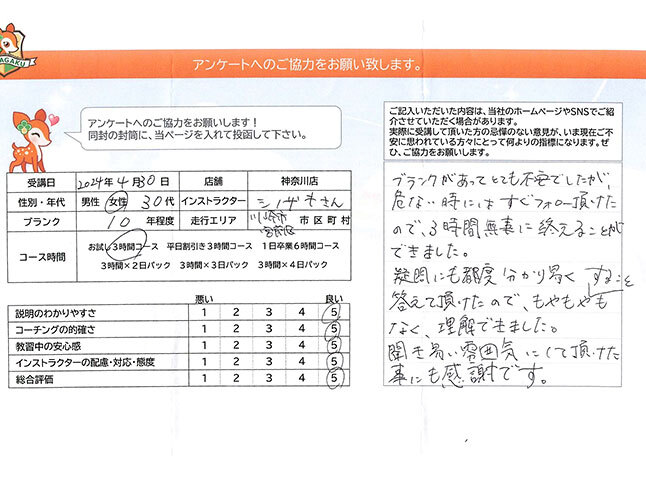 AGAKU
アンケートへのご協力をお願い致します。
アンケートへのご協力をお願いします！
同封の封筒に、当ページを入れて投函して下さい。
ご記入いただいた内容は、当社のホームページやSNSでご紹介させていただく場合があります。
実際に受講して頂いた方の忌憚のない意見が、いま現在ご不安に思われている方々にとって何よりの指標になります。ぜひ、ご協力をお願いします。
受講日 2024年4月30日 店舗 神奈川店
性別・年代 男性 女性 30代 インストラクター さん
ブランク 10 年程度 走行エリア 川崎市 宮前区 市区町村
コース時間 お試し3時間コース 平日割引き3時間コース 1日卒業6時間コース
3時間×2日パック 3時間×3日パック 3時間×4日パック
悪い 良い
説明のわかりやすさ 1 2 3 4 5
コーチングの的確さ 1 2 3 4 5
教習中の安心感 1 2 3 4 5
インストラクターの配慮・対応・態度 1 2 3 4 5
総合評価 1 2 3 4 5
ブランクがあってとても不安でしたが、
危ない時にはすぐフォロー頂けた
ので、3時間無事に終えることが
できました。
疑問にも都度分かり易く
答えて頂けたので、もやもやも
なく、理解できました。
聞き易い雰囲気にして頂けた
事にも感謝です。